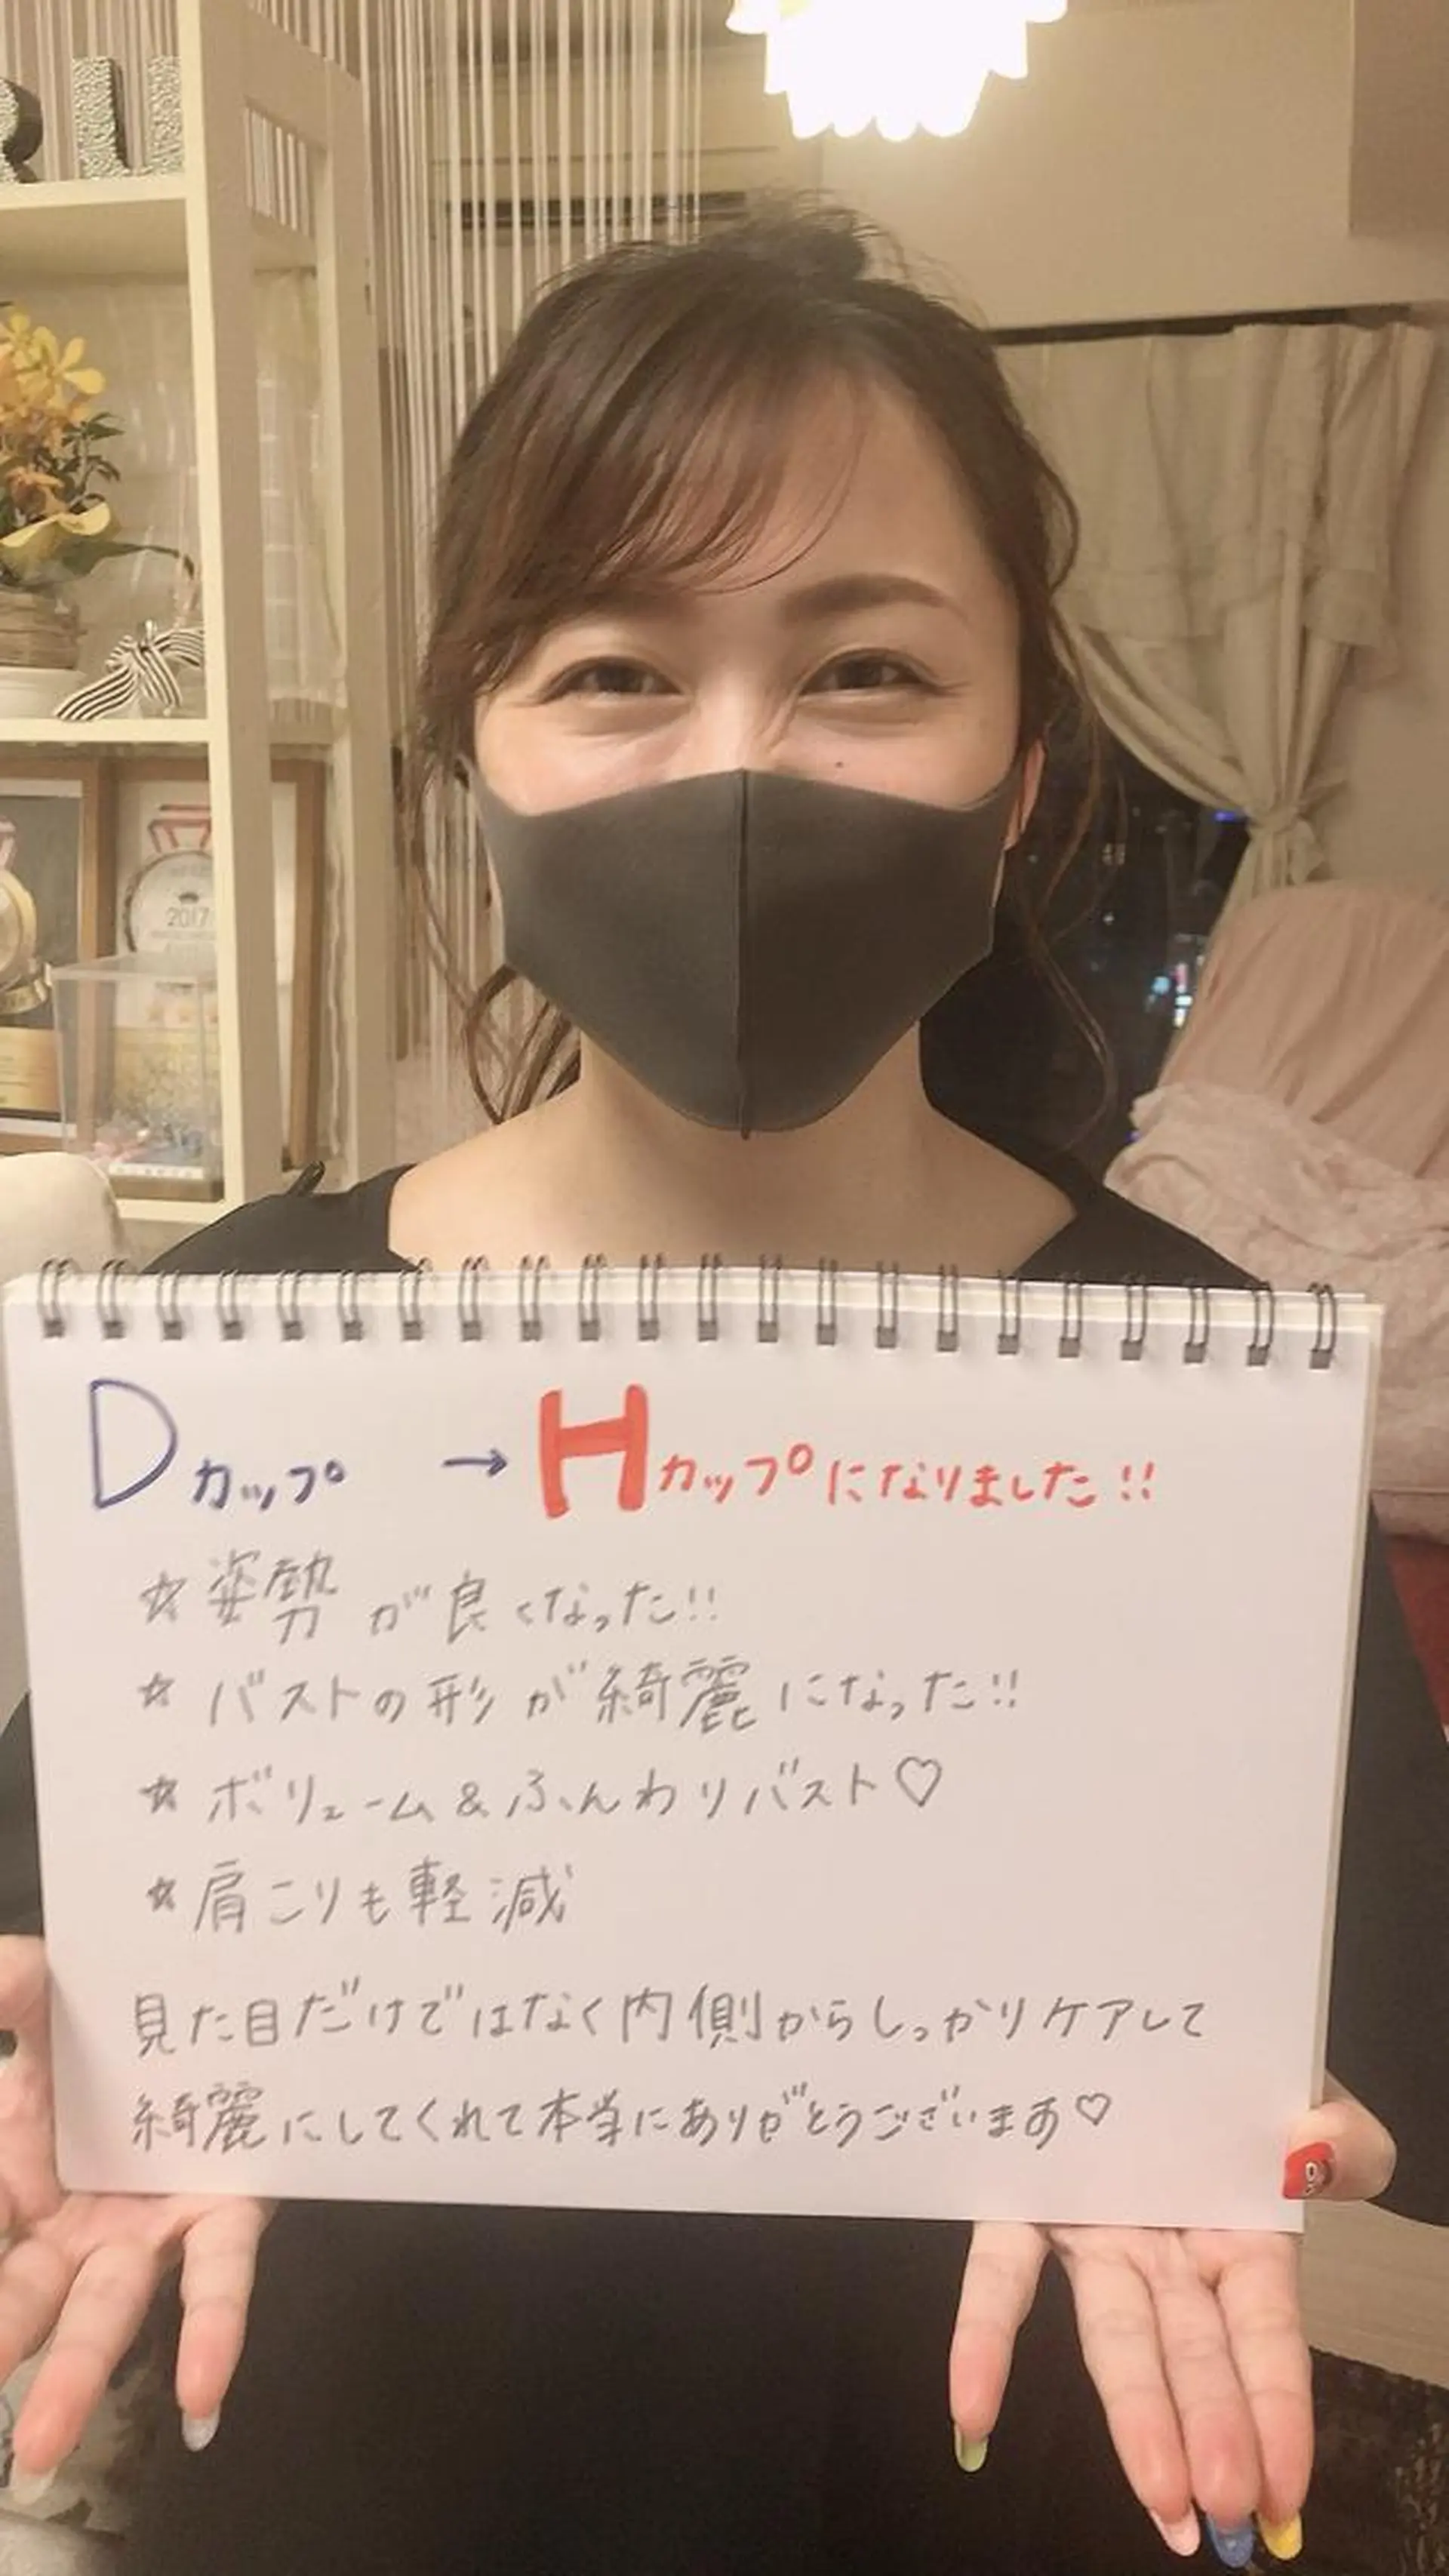 RLL
2017
Dカップ → Hカップになりました!!
☆姿勢が良くなった!!
☆バストの形が綺麗になった!!
☆ボリューム&ふんわりバスト♡
☆肩こりも軽減
見た目だけではなく内側からしっかりケアして
綺麗にしてくれて本当にありがとうございます♡